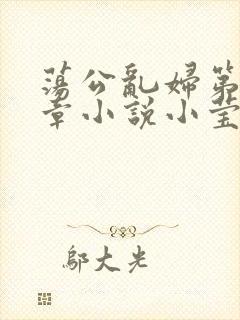 蕩公亂婦第
章小說小莹
鄔大光